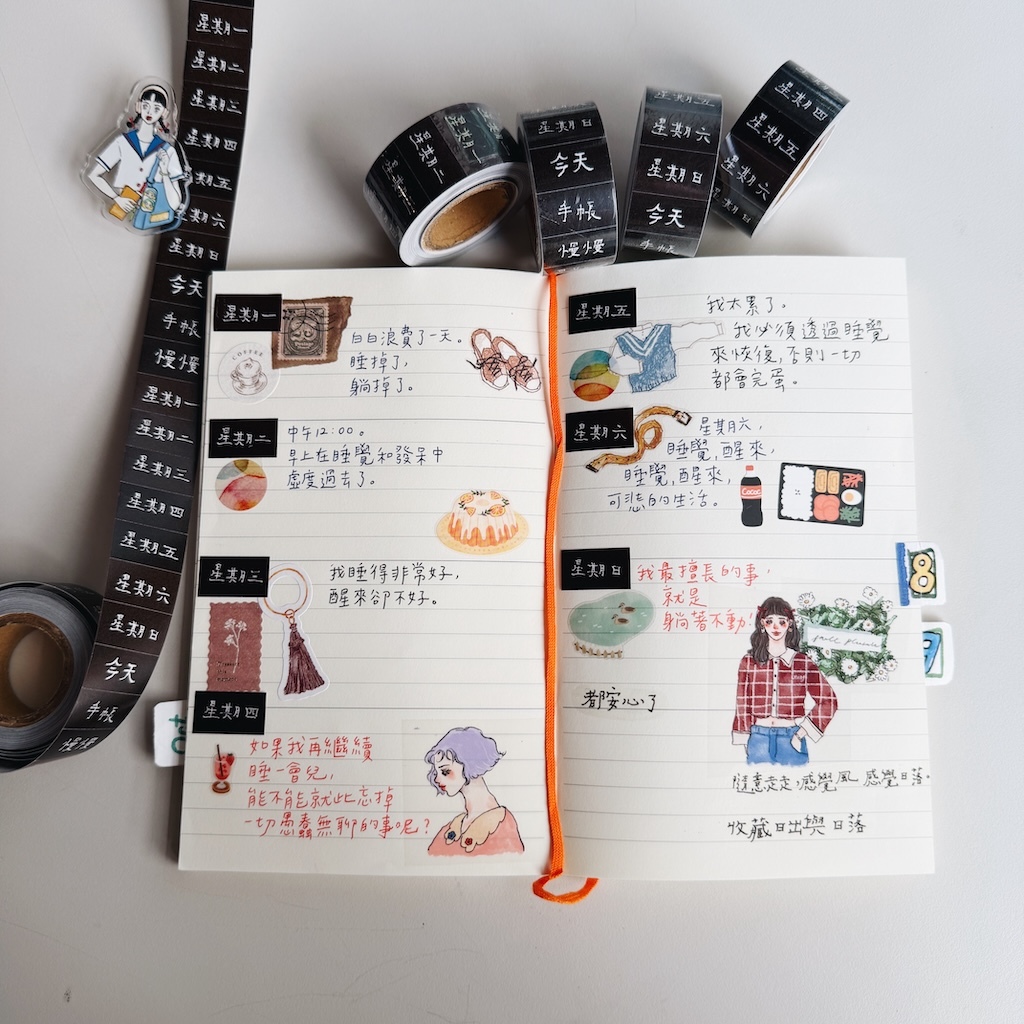 星期一
星期二
星期三
星期四
星期五
星期六
星期日
今天
手帳
慢慢
星期一
星期二
星期三
星期四
星期五
星期六
星期日
今天
手帳
慢慢
星期一
星期二
星期日
今天
手帳
慢慢
星期五
星期六
星期日
今天
手帳
星期四
星期五
星期六
星期日
星期一
COFFEE
白白浪費了一天。
睡掉了,
躺掉了。
星期二
中午12:00。
早上在睡覺和發呆中
虛度過去了。
星期三
我睡得非常好,
醒來卻不好。
星期四
如果我再繼續
睡一會兒,
能不能就此忘掉
一切愚蠢無聊的事呢?
星期五
我太累了。
我必須透過睡覺
來恢復,否則一切
都會完蛋。
星期六
星期六,
睡覺,醒來,
睡覺,醒來,
可悲的生活。
星期日
我最擅長的事,
就是
躺著不動!
都安心了
隨意走走,感覺風 感覺日落。
收藏日出與日落
8